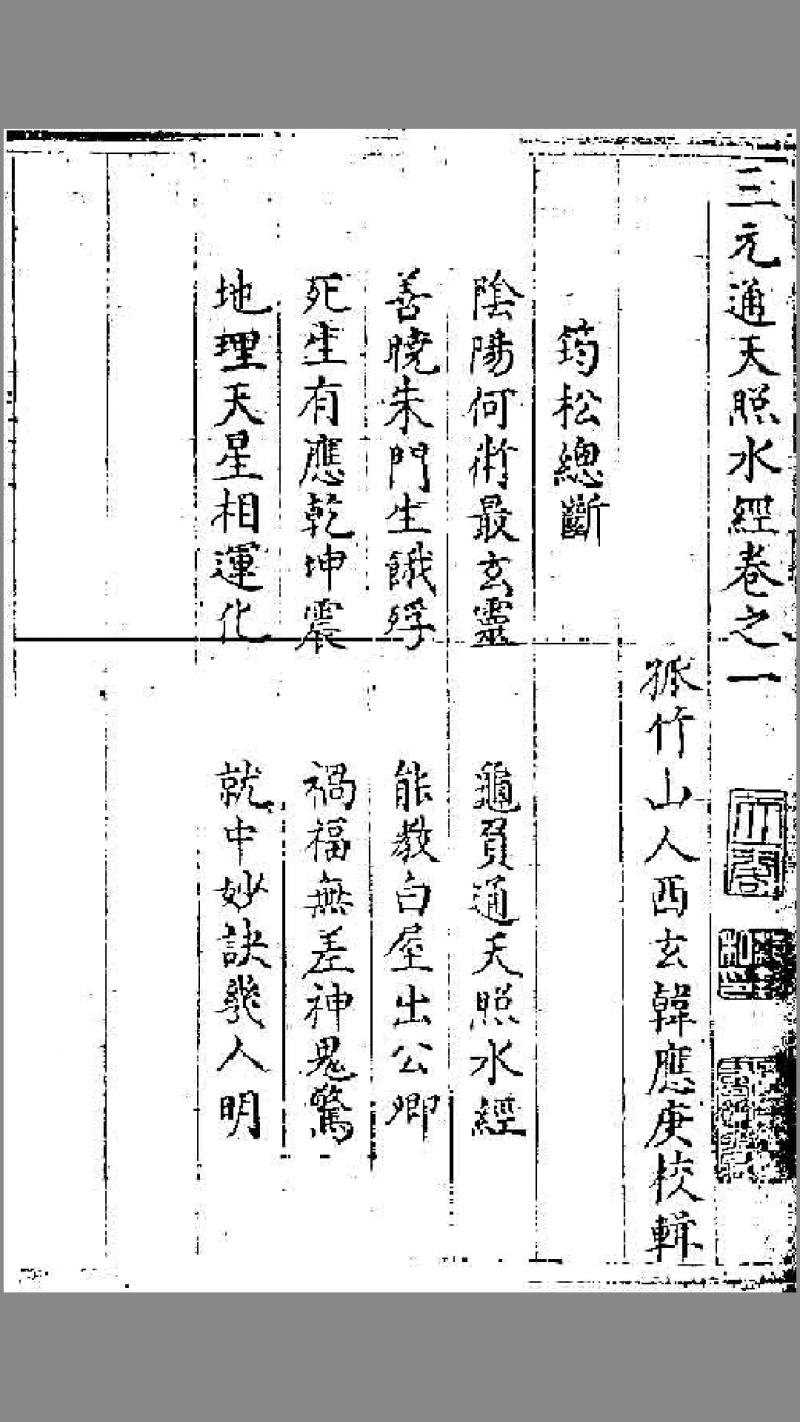 三元通天照水經卷之一
孤竹山人西玄韓應庚校輯
筠松總斷
陰陽何術最玄靈 龜負通天照水經
善曉朱門生餓殍 能教白屋出公卿
死生有應乾坤震 禍福無差神鬼驚
地理天星相運化 就中妙訣幾人明